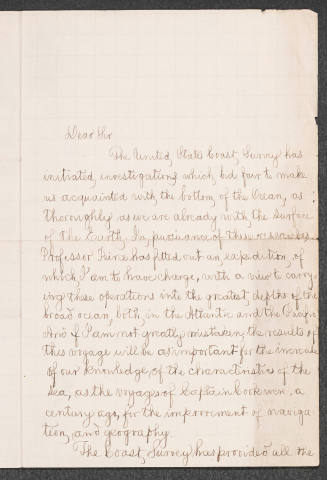 Dear Sir
The United States Coast Survey has
initiated investigations which bid fair to make
us acquainted with the bottom of the Ocean, as
thoroughly as we are already with the surface
of the Earth. In pursuance of these researches
Professor Peirce has fitted out an expedition, of
which I am to have charge, with a view to carry-
ing these operations into the greatest depths of the
broad ocean, both in the Atlantic and the Pacific
And if I am not greatly mistaken, the results of
this voyage will be as important for the increase
of our knowledge, of the characteristics of the
Sea, as the voyages of Captain Cook were, a
century ago, for the improvement of naviga-
tion, and geography.
The Coast Survey has provided all the